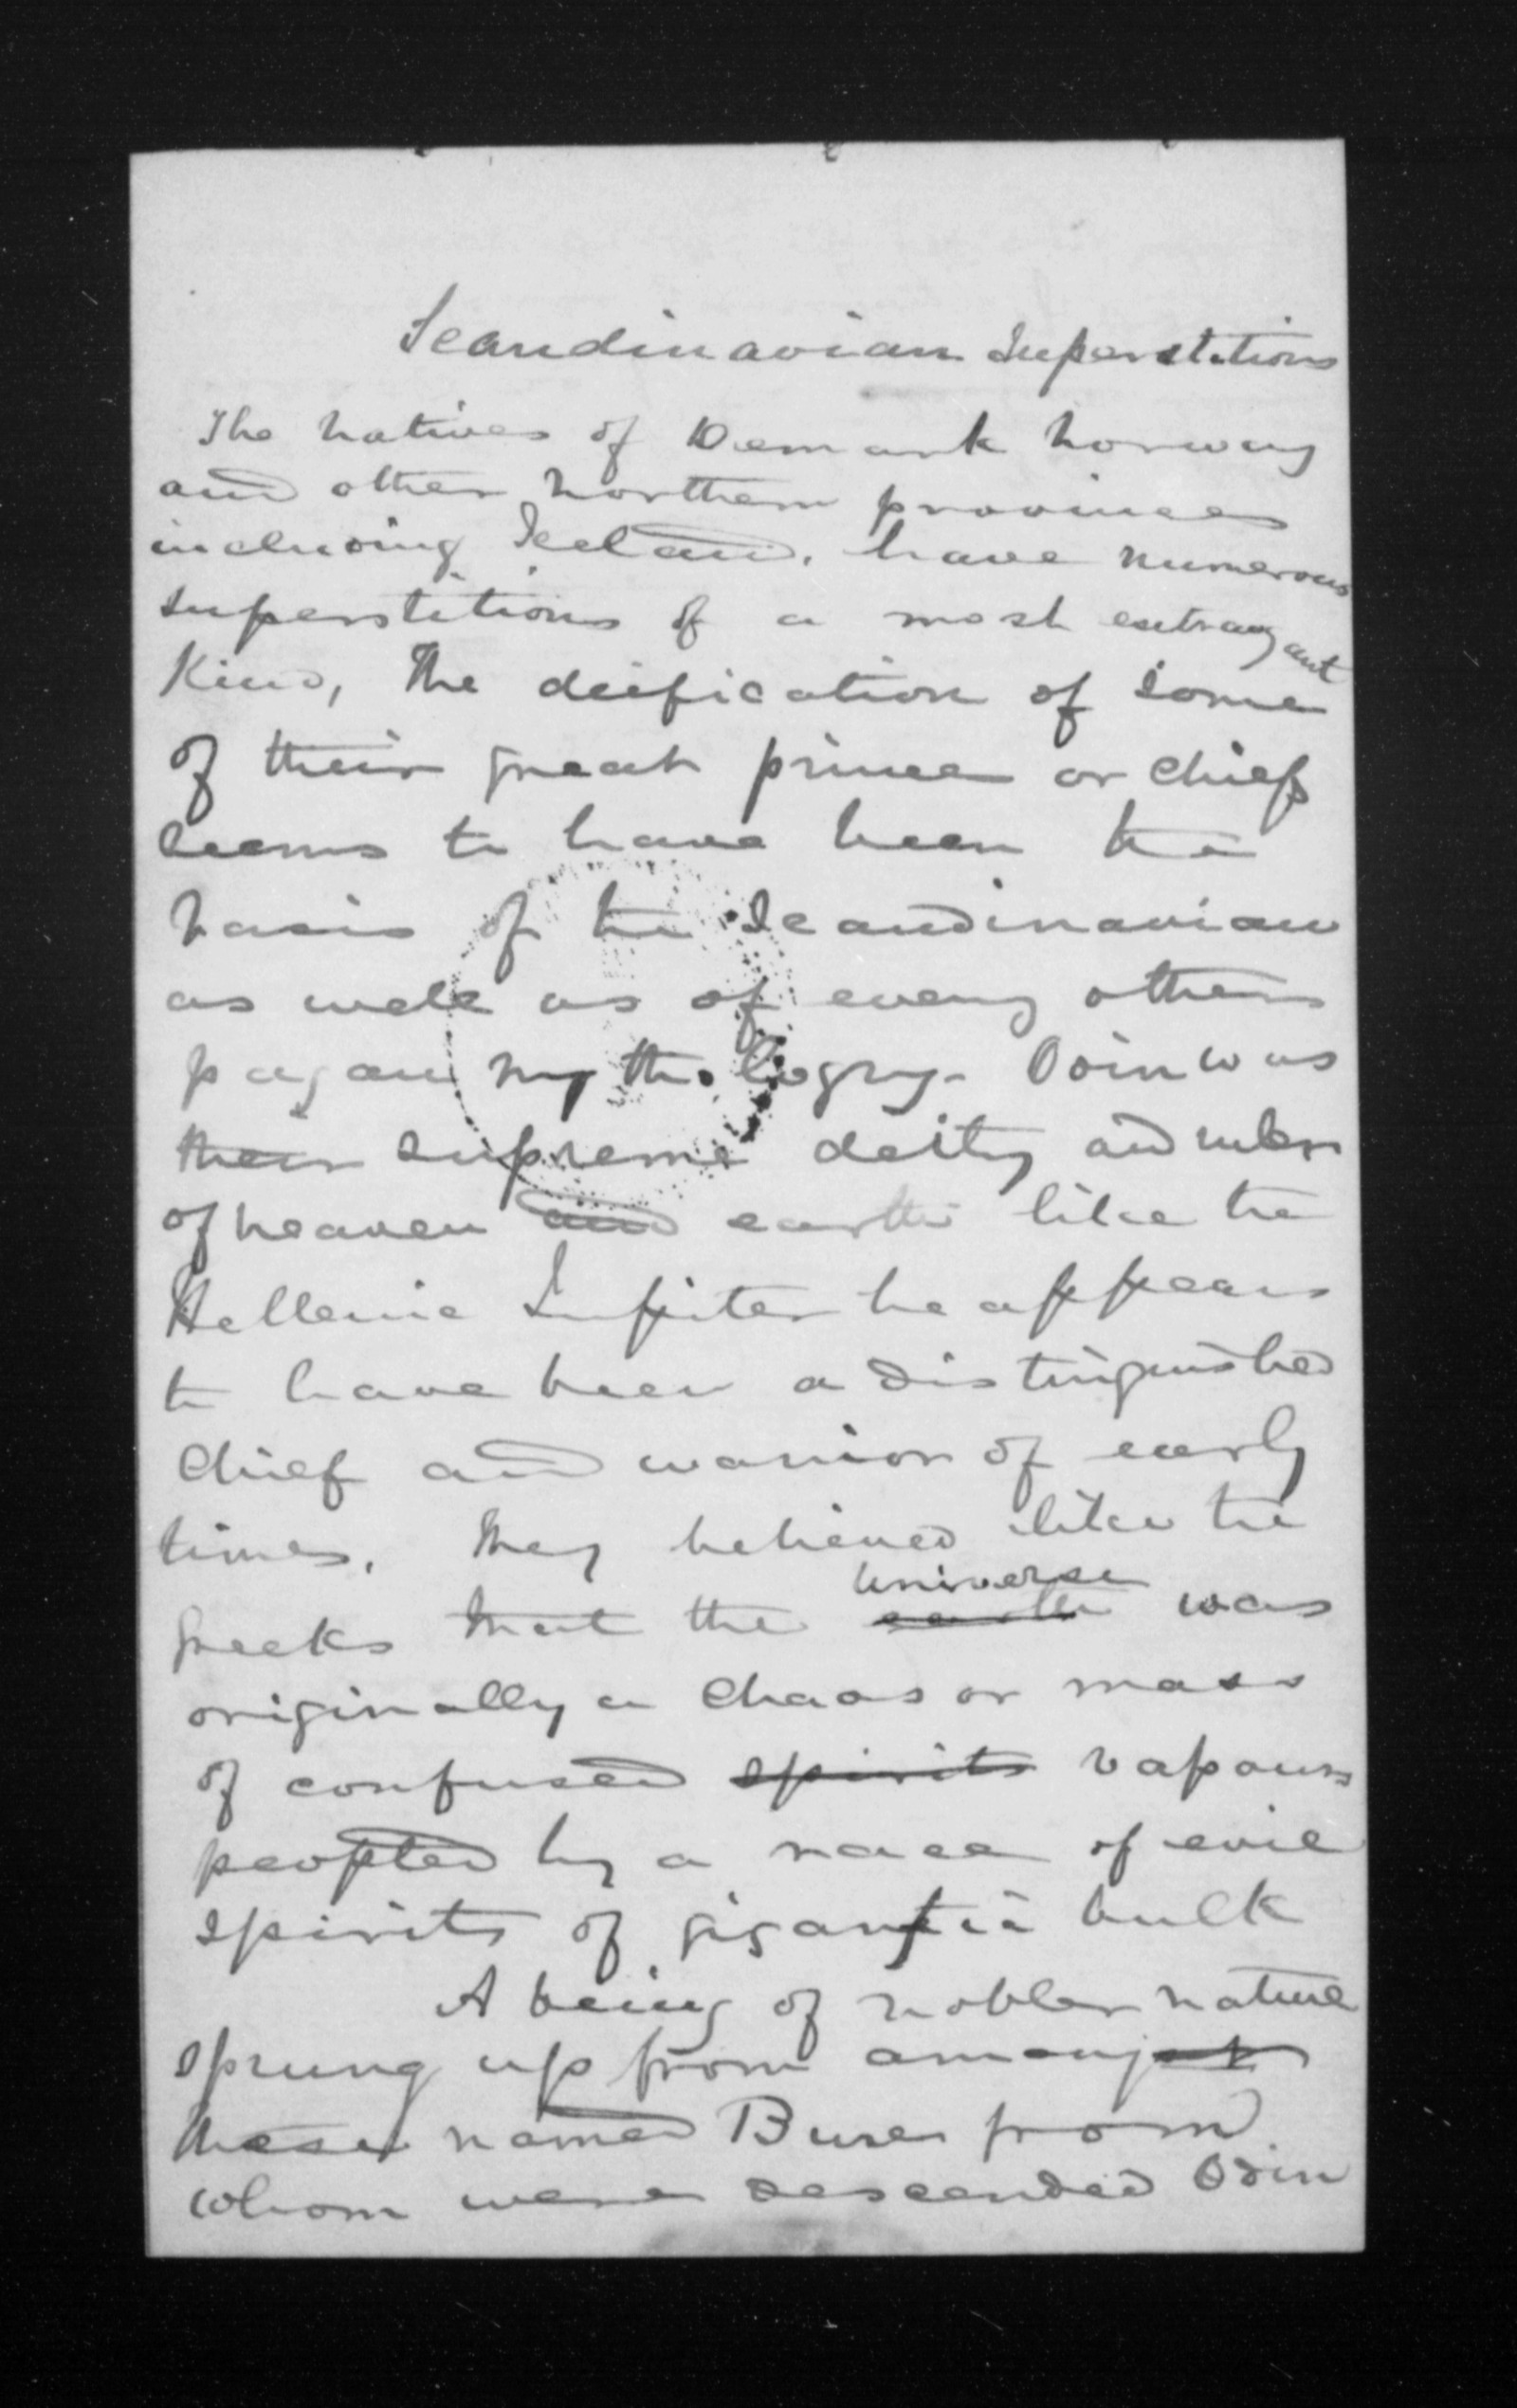 Scandinavian Superstitions
The natives of Demark Norway
and other Northern provinces
including Iceland, have numerous
superstitions of a most extragant
Kind, The deification of some
of their great prince or chief
seems to have been the
basis of the Scandinavian
as well as of every other
pagan mythology. Odin was
their supreme deity and ruler
of heaven and earth like the
Hellenic Jupiter he appears
to have been a distinguished
chief and warrior of early
times. They believed like the
universe
Greeks that the earth was
originally a chaos or mass
of confused spirits vapours
peopled by a race of evil
spirits of gigantic bulk
A being of nobler nature
sprung up from amongst
these named Bure from
whom were descended Odin